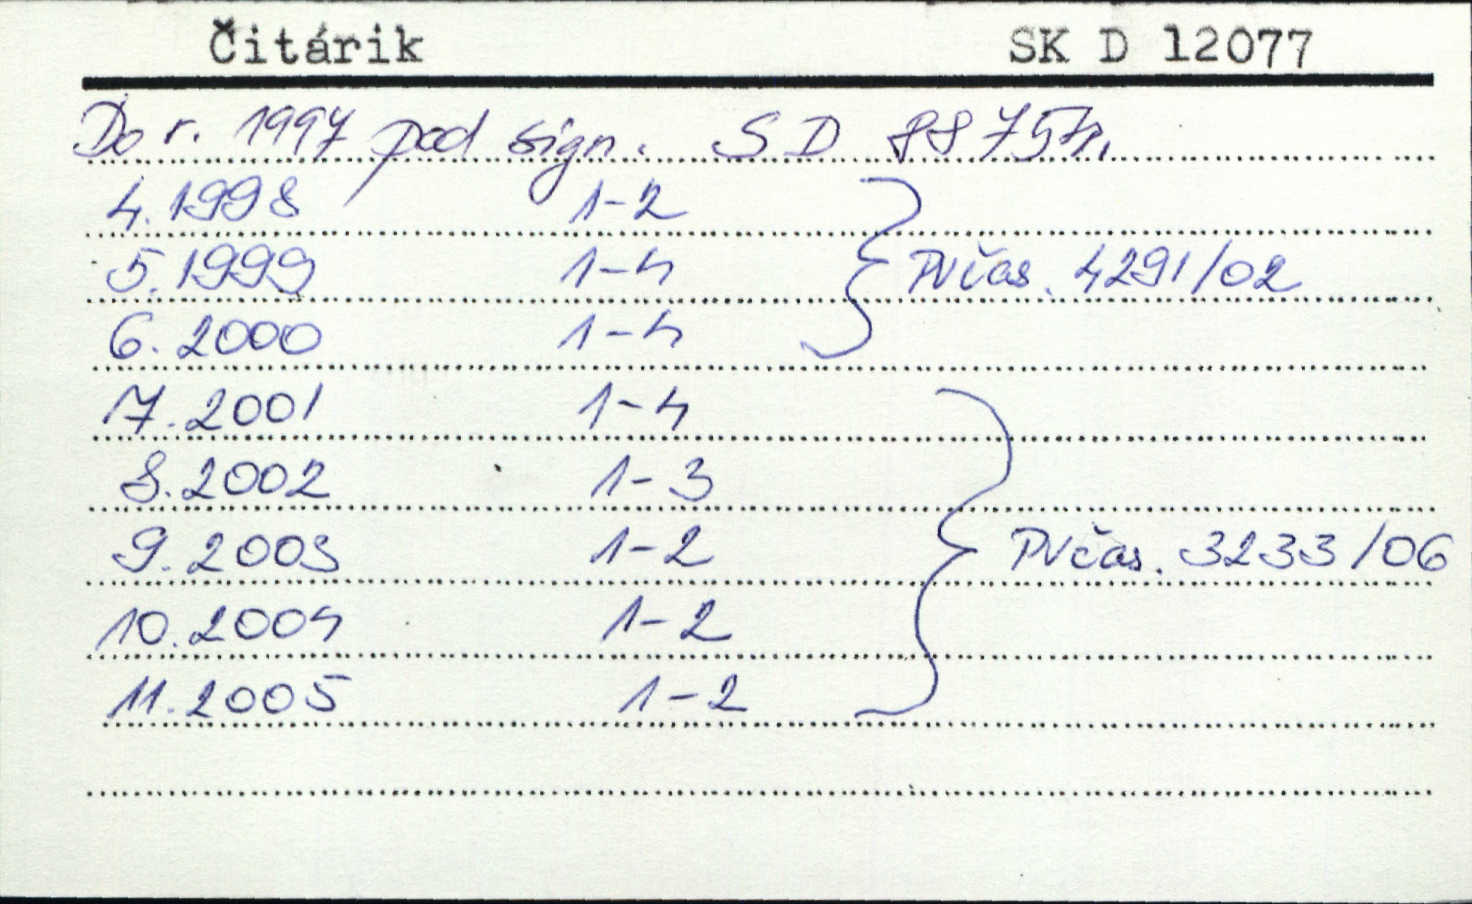 Čitárik SK D 12077
Do r. 1997 pod sign. SD
4.1998 1-2
5.1999 1-4 PVčas. 4291/02
6.2000 1-4
7.2001 1-4
8.2002 1-3
9.2003 1-2 PVčas. 3233/06
10.2004 1-2
11.2005 1-2